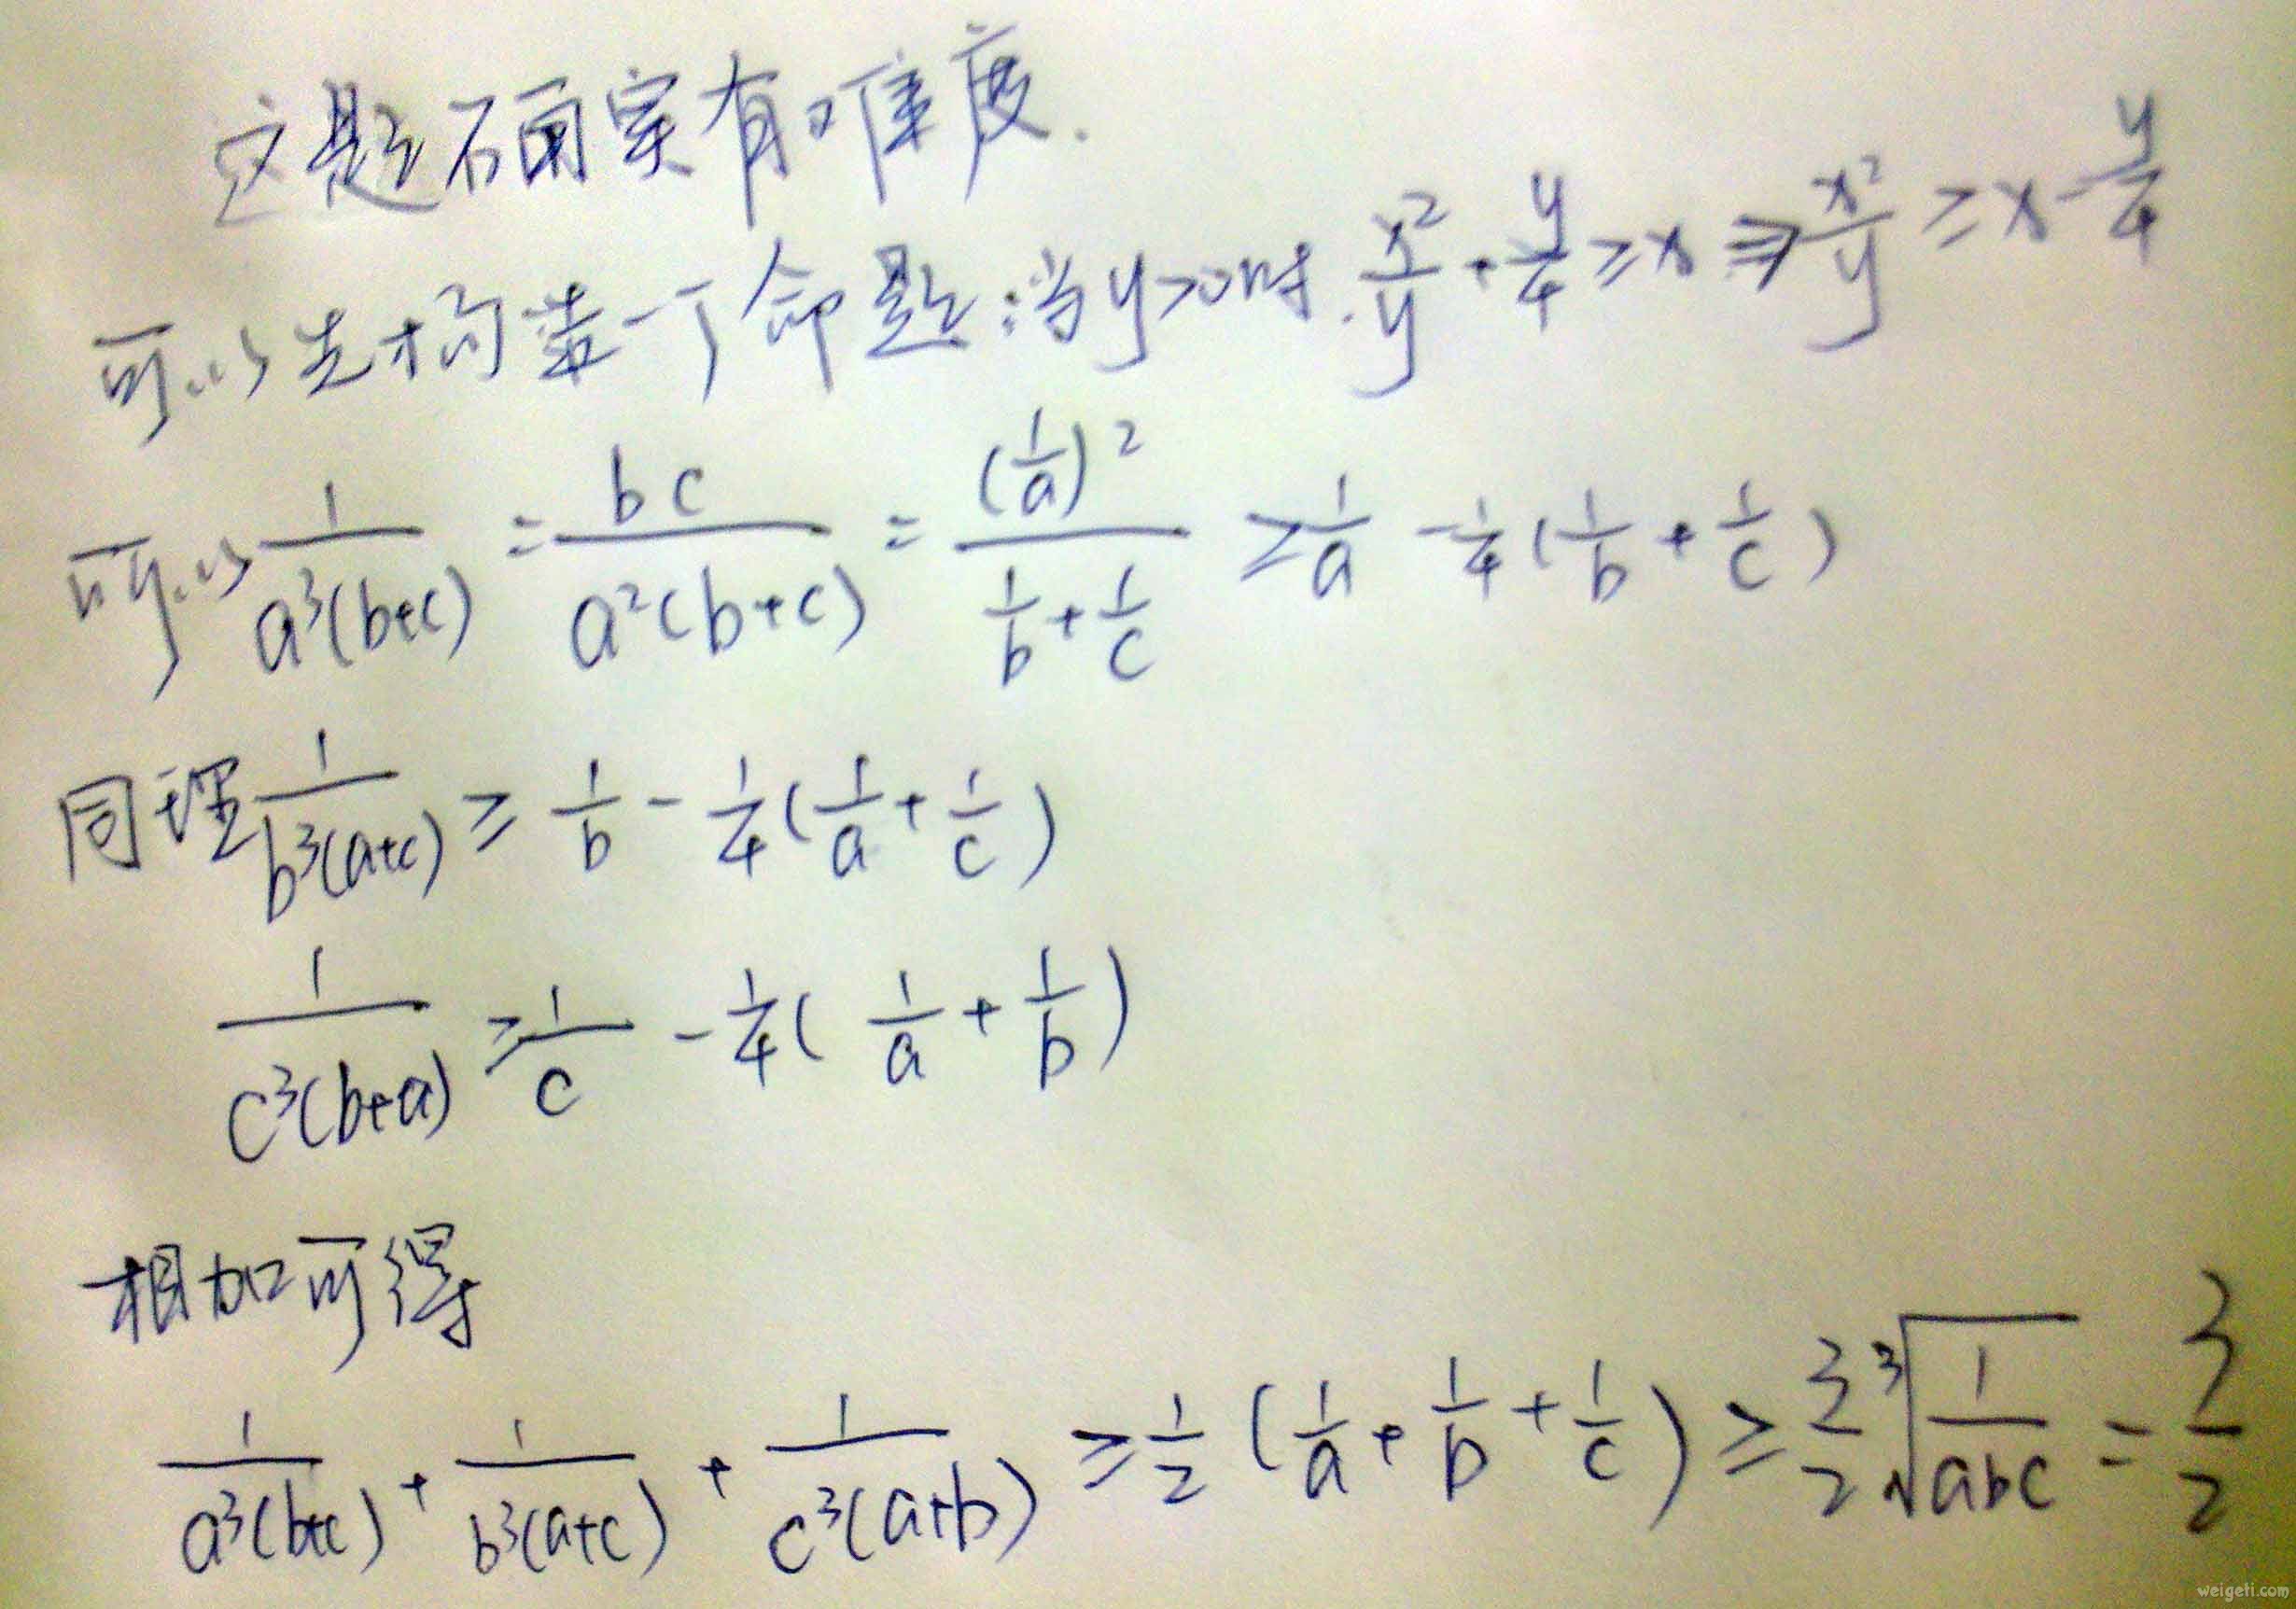 这题确实有难度.
可以先构造一个命题:当y>0时. x²/y + y/4 ≥ x ⇒ x²/y ≥ x - y/4
可以 1/(a³(b+c)) = bc/(a²(b+c)) = (1/a)²/(1/b + 1/c) ≥ 1/a - 1/4(1/b + 1/c)
同理 1/(b³(a+c)) ≥ 1/b - 1/4(1/a + 1/c)
1/(c³(b+a)) ≥ 1/c - 1/4(1/a + 1/b)
相加可得
1/(a³(b+c)) + 1/(b³(a+c)) + 1/(c³(a+b)) ≥ 1/2(1/a + 1/b + 1/c) ≥ 3/2 ³√(1/abc) = 3/2
weigeti.com